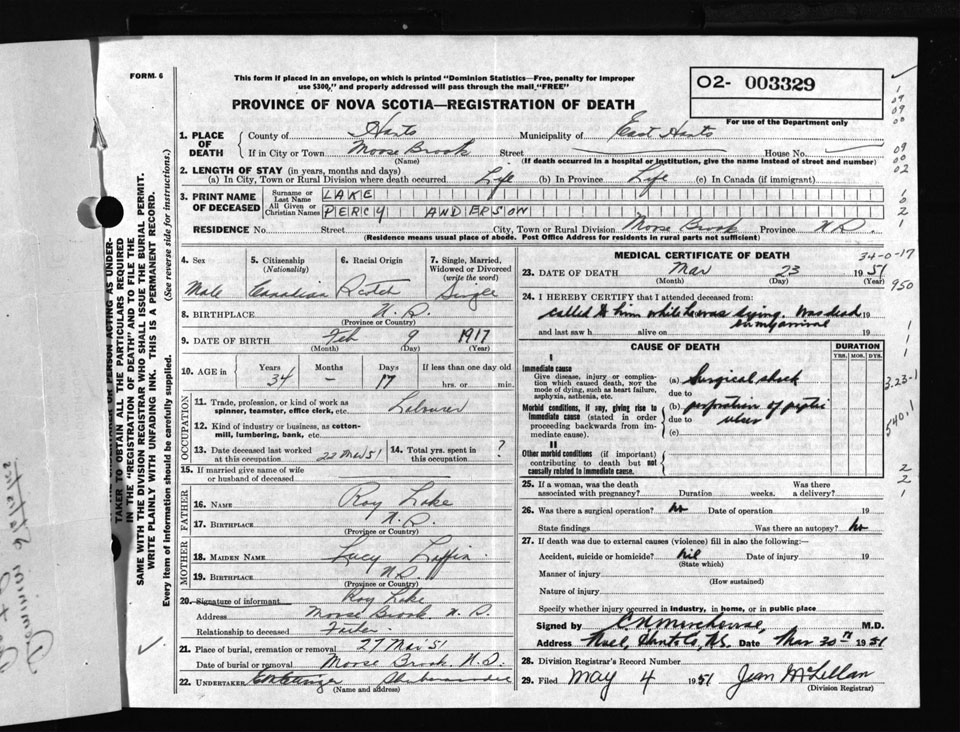 FORM 6
This form if placed in an envelope, on which is printed "Dominion Statistics—Free, penalty for improper
use $300," and properly addressed will pass through the mail "FREE"
O2- 003329
PROVINCE OF NOVA SCOTIA—REGISTRATION OF DEATH
For use of the Department only
1. PLACE OF DEATH County of Hants Municipality of East Hants
If in City or Town Moose Brook Street House No.
(Name) (If death occurred in a hospital or institution, give the name instead of street and number)
2. LENGTH OF STAY (in years, months and days)
(a) In City, Town or Rural Division where death occurred Life (b) In Province Life (c) In Canada (if immigrant)
3. PRINT NAME OF DECEASED Surname or Last Name LAKE
All Given or Christian Names PERCY ANDERSON
RESIDENCE No. Street City, Town or Rural Division Moose Brook Province N.S.
(Residence means usual place of abode. Post Office Address for residents in rural parts not sufficient)
4. Sex Male
5. Citizenship (Nationality) Canadian
6. Racial Origin Scotch
7. Single, Married, Widowed or Divorced (write the word) Single
8. BIRTHPLACE N.S.
(Province or Country)
9. DATE OF BIRTH Feb 9 1917
(Month) (Day) (Year)
10. AGE in Years 34 Months – Days 17 If less than one day old hrs. or min.
OCCUPATION
11. Trade, profession, or kind of work as spinner, teamster, office clerk, etc. Labourer
12. Kind of industry or business, as cotton-mill, lumbering, bank, etc.
13. Date deceased last worked at this occupation 22 Mar 51
14. Total yrs. spent in this occupation ?
15. If married give name of wife or husband of deceased
FATHER
16. NAME Roy Lake
17. BIRTHPLACE N.S.
(Province or Country)
MOTHER
18. MAIDEN NAME Lucy Laffin
19. BIRTHPLACE N.S.
(Province or Country)
20. Signature of informant Roy Lake
Address Moose Brook N.S.
Relationship to deceased Father
21. Place of burial, cremation or removal 27 Mar 51
Date of burial or removal Moose Brook N.S.
22. UNDERTAKER Shubenacadie
(Name and address)
MEDICAL CERTIFICATE OF DEATH
34-0-17
23. DATE OF DEATH Mar 23 1951
(Month) (Day) (Year)
950
24. I HEREBY CERTIFY that I attended deceased from:
called to him while he was dying. Was dead 19
on my arrival
and last saw h alive on 19
CAUSE OF DEATH DURATION
YRS. MOS. DYS.
I
Immediate cause
Give disease, injury or complication which caused death, not the mode of dying, such as heart failure, asphyxia, asthenia, etc.
(a) Surgical shock
due to
Morbid conditions, if any, giving rise to immediate cause (stated in order proceeding backwards from immediate cause).
(b) perforation of peptic
due to ulcer
(c)
II
Other morbid conditions (if important) contributing to death but not causally related to immediate cause.
3.23-1
540.1
25. If a woman, was the death associated with pregnancy? Duration weeks. Was there a delivery?
26. Was there a surgical operation? No Date of operation 19
State findings Was there an autopsy? No
27. If death was due to external causes (violence) fill in also the following:—
Accident, suicide or homicide? nil Date of injury 19
(State which)
Manner of injury
(How sustained)
Nature of injury
Specify whether injury occurred in industry, in home, or in public place
Signed by M.D.
Address Noel, Hants Co, N.S. Date Mar 30th 1951
28. Division Registrar's Record Number
29. Filed May 4 1951 Jean McLellan
(Division Registrar)
TAKER TO OBTAIN ALL THE PARTICULARS REQUIRED
IN THE "REGISTRATION OF DEATH" AND TO FILE THE
SAME WITH THE DIVISION REGISTRAR WHO SHALL ISSUE THE BURIAL PERMIT.
WRITE PLAINLY WITH UNFADING INK. THIS IS A PERMANENT RECORD.
Every item of information should be carefully supplied. (See reverse side for instructions.)